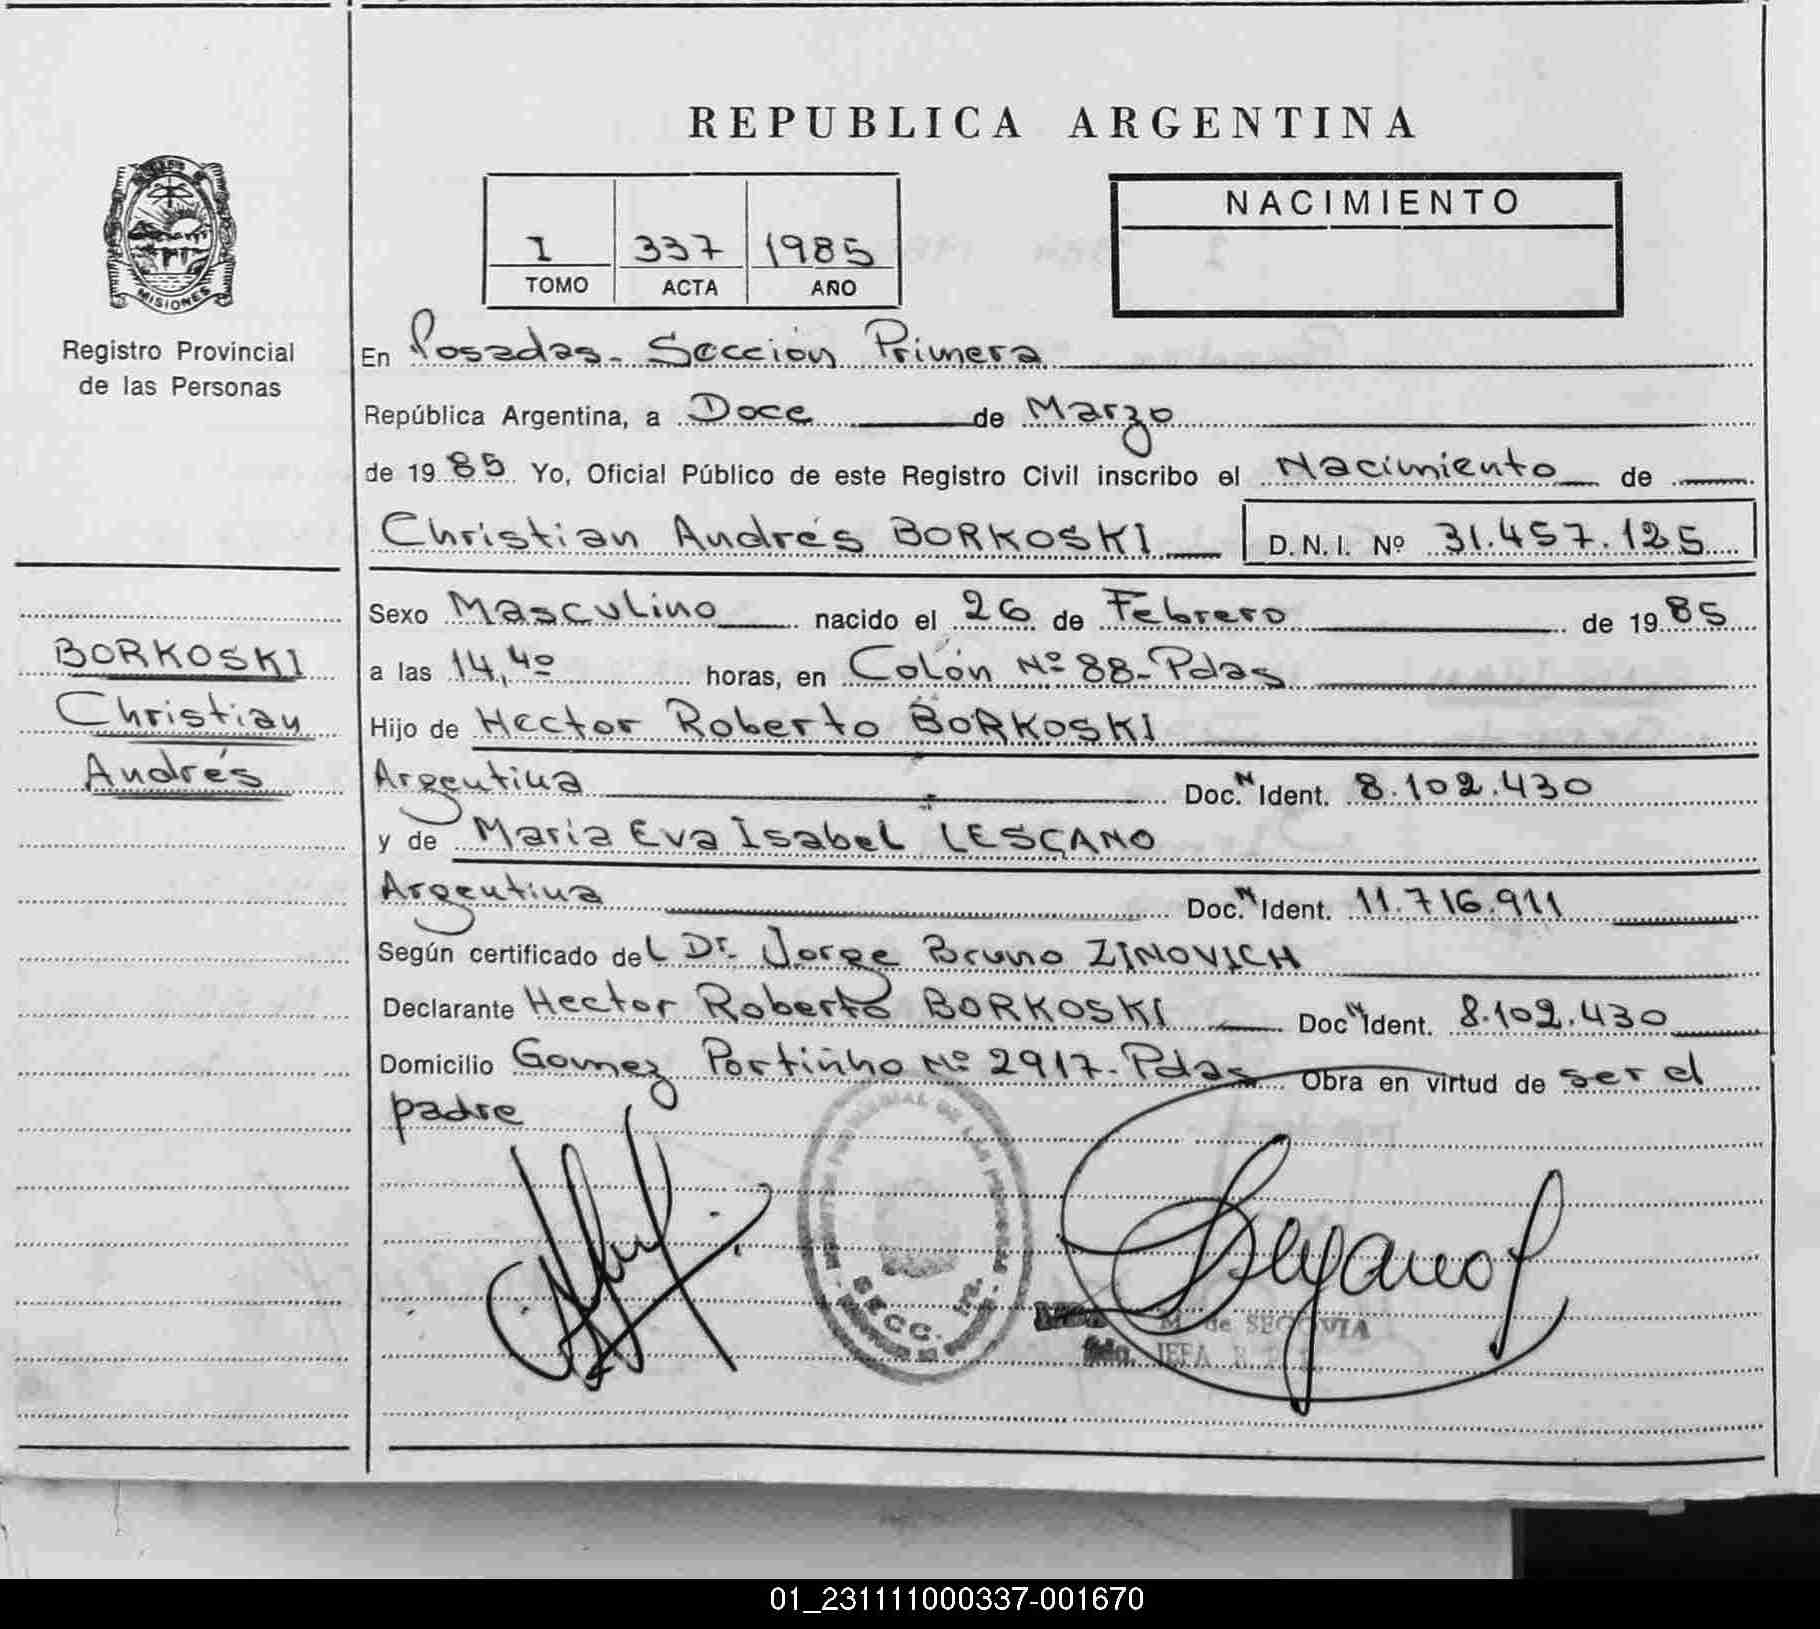 REPUBLICA ARGENTINA
NACIMIENTO
I 337 1985
TOMO ACTA AÑO
MISIONES
Registro Provincial
de las Personas
En Posadas - Sección Primera
República Argentina, a Doce de Marzo
de 1985 Yo, Oficial Público de este Registro Civil inscribo el Nacimiento de
Christian Andrés BORKOSKI D.N.I. Nº 31.457.125
Sexo Masculino nacido el 26 de Febrero de 1985
a las 14,40 horas, en Colón Nº 88 - Pdas
Hijo de Hector Roberto BORKOSKI
Argentina Doc. N Ident. 8.102.430
y de Maria Eva Isabel LESCANO
Argentina Doc. N Ident. 11.716.911
Según certificado del Dr. Jorge Bruno ZINOVICH
Declarante Hector Roberto BORKOSKI Doc N Ident. 8.102.430
Domicilio Gomez Portinho Nº 2917 - Pdas Obra en virtud de ser el
padre
BORKOSKI
Christian
Andrés
SECC. 1ra.
M. de SEGOVIA
JEFA
01_231111000337-001670